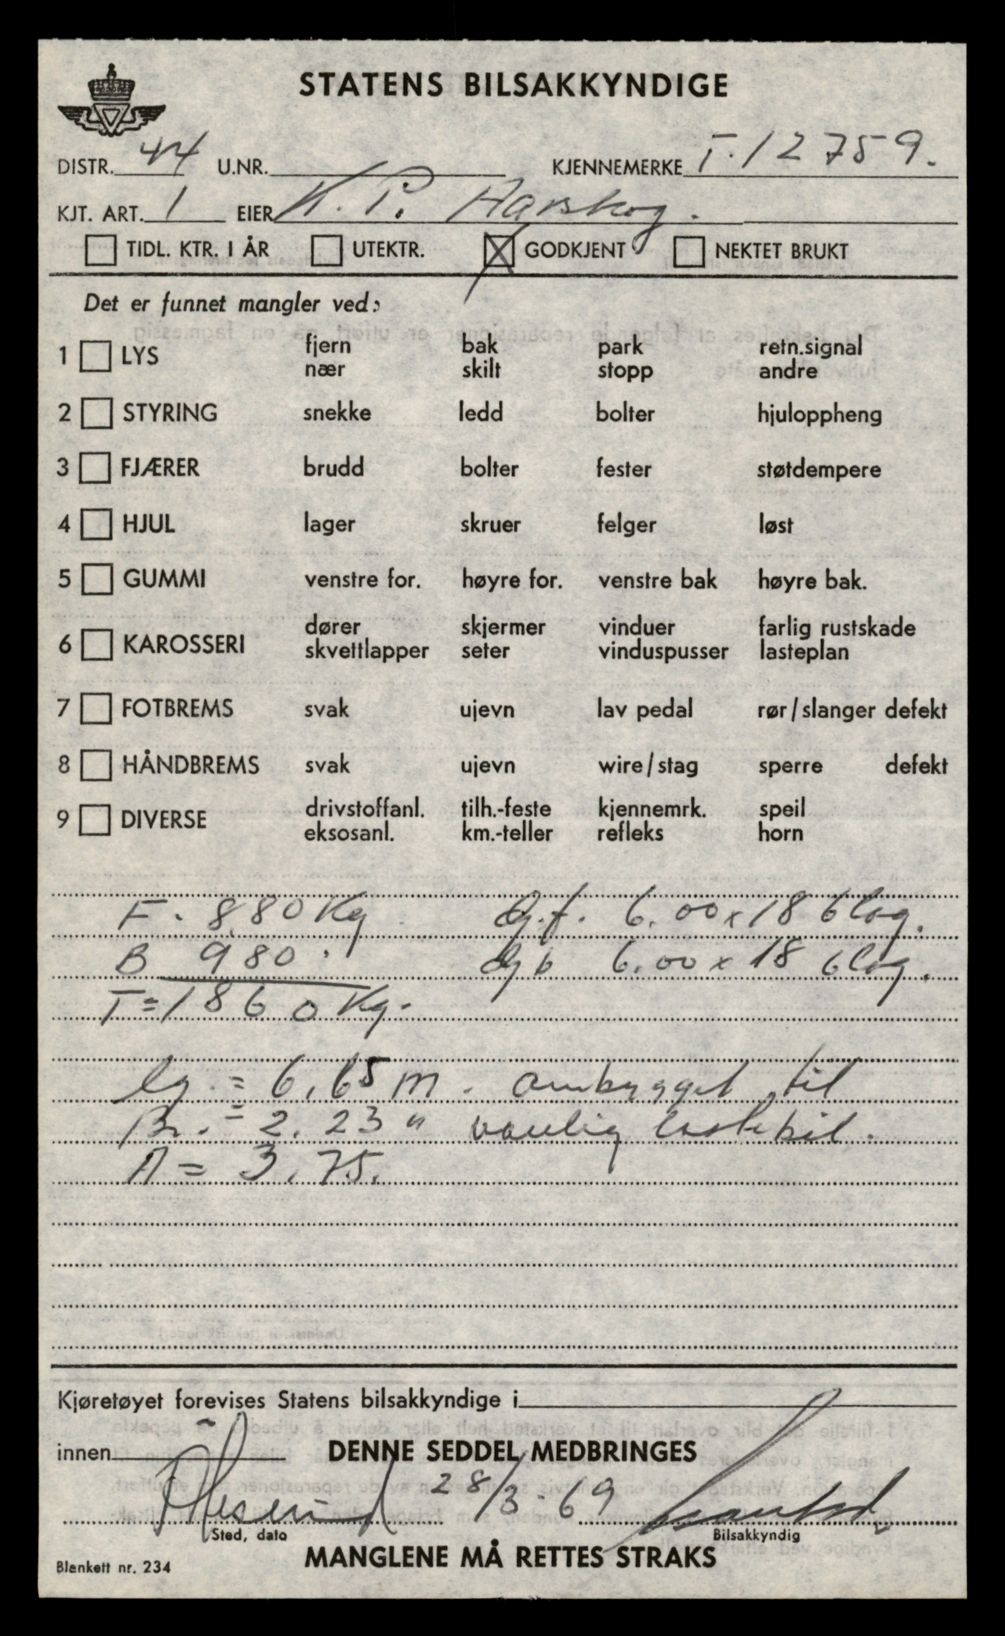 STATENS BILSAKKYNDIGE
DISTR. 44 U.NR. KJENNEMERKE T-12759.
KJT. ART. 1 EIER K. P. Aarskog.
TIDL. KTR. I ÅR UTEKTR. GODKJENT NEKTET BRUKT
Det er funnet mangler ved:
1 LYS fjern bak park retn.signal
nær skilt stopp andre
2 STYRING snekke ledd bolter hjuloppheng
3 FJÆRER brudd bolter fester støtdempere
4 HJUL lager skruer felger løst
5 GUMMI venstre for. høyre for. venstre bak høyre bak.
6 KAROSSERI dører skjermer vinduer farlig rustskade
skvettlapper seter vinduspusser lasteplan
7 FOTBREMS svak ujevn lav pedal rør/slanger defekt
8 HÅNDBREMS svak ujevn wire/stag sperre defekt
9 DIVERSE drivstoffanl. tilh.-feste kjennemrk. speil
eksosanl. km.-teller refleks horn
F. 880 Kg. Dg.f. 6.00x18 6 lag.
B 980. Dg b 6.00x18 6 lag.
T=1860 Kg.
lg. = 6,65 m. ombygget til
Br. = 2.23 " vanlig lastebil.
A = 3.75.
Kjøretøyet forevises Statens bilsakkyndige i
innen DENNE SEDDEL MEDBRINGES
Ålesund 28/3-69
Sted, dato Bilsakkyndig
Blankett nr. 234 MANGLENE MÅ RETTES STRAKS